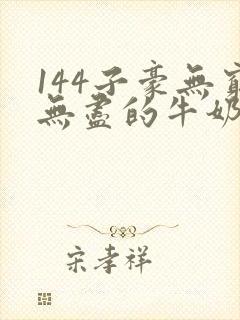 144子豪無窮
無盡的牛奶
宋孝祥